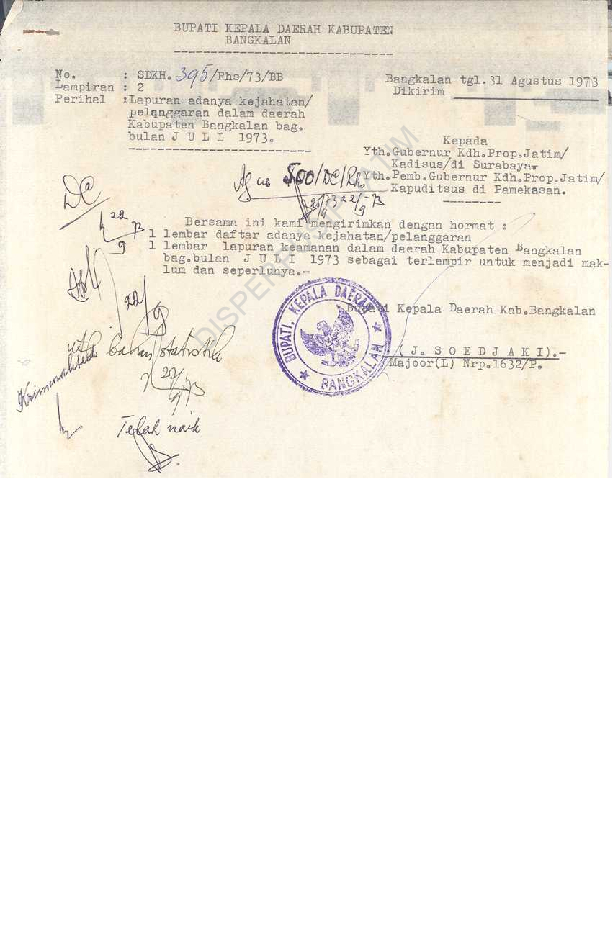 BUPATI KEPALA DAERAH KABUPATEN
BANGKALAN
No. : SEKH. 395/Rhs/73/BB
Lampiran : 2
Perihal :Lapuran adanya kejahatan/
pelanggaran dalam daerah
Kabupaten Bangkalan bag.
bulan J U L I 1973.
Bangkalan tgl.31 Agustus 1973
Dikirim
Kepada
Yth.Gubernur Kdh.Prop.Jatim/
Kadisus/di Surabaya.
Yth.Pemb.Gubernur Kdh.Prop.Jatim/
Kapuditsus di Pamekasan.
500/DC/Rh
DC
22/9 73
Bersama ini kami mengirimkan dengan hormat :
1 lembar daftar adanya kejahatan/pelanggaran
1 lembar lapuran keamanan dalam daerah Kabupaten Bangkalan
bag.bulan J U L I 1973 sebagai terlampir untuk menjadi mak-
lum dan seperlunya.-
Kepala Daerah Kab.Bangkalan
BUPATI, KEPALA DAERAH
BANGKALAN
( J. S O E D J A K I ).-
Majoor(L) Nrp.1632/P.
22/9
utk bahan statistik
Kriminalitas
Telah naik